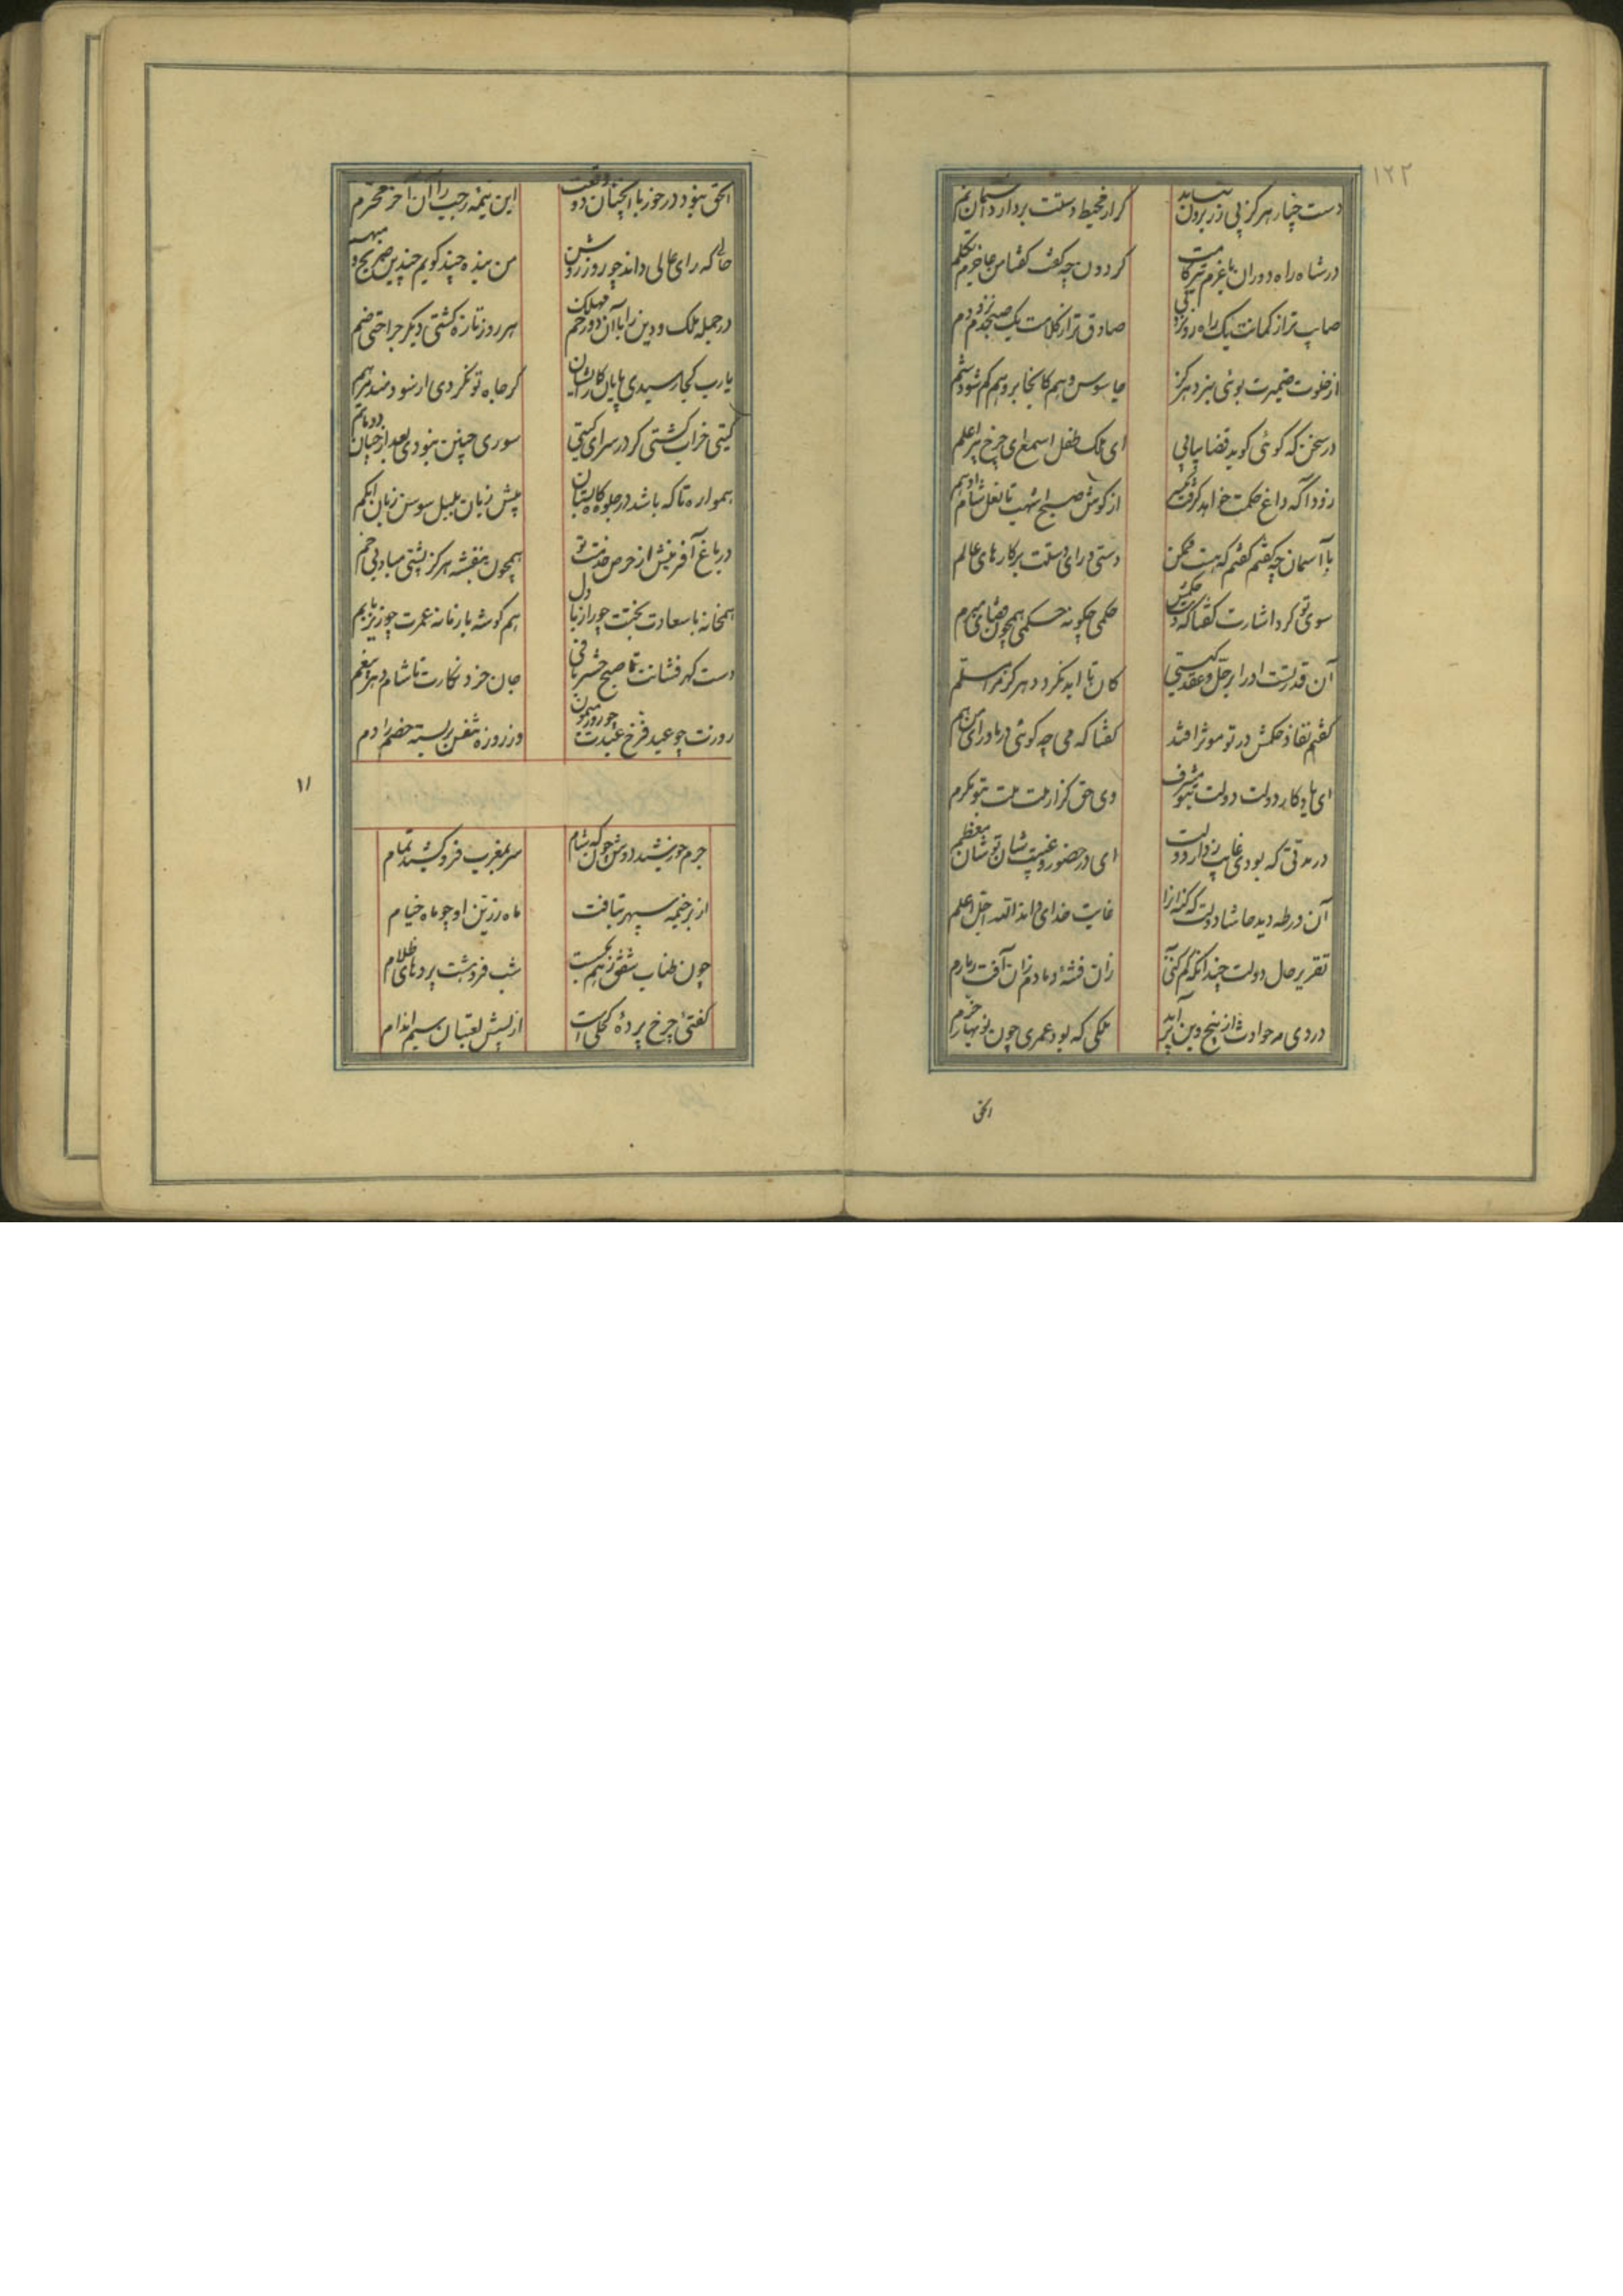 ۱۲۲
دست چنار هرگز بی زر برون نیاید گر از محیط دستت بردارد آسمان نم
در شاه راه دوران با عزم تیزگامت گردون چه گفت گفتا من عاجزم تکلم
صایب‌تر از کمانت یک راه رو نزد پی صادق‌تر از کلامت یک صبحدم نزد دم
از خلوت ضمیرت بوئی نبرد هرگز جاسوس وهم کانجا بر وهم گم شود شم
در سخن که گوئی گوید قضا پیاپی ای ملک طفل اسمع ای چرخ پیر اعلم
زودا که داغ حکمت خواهد گرفت یکسر از گوش صبح اشهب تا نعل شام ادهم
با آسمان چه گفتم گفتم که هست ممکن دستی ورای دستت برکارهای عالم
سوی تو کرد اشارت گفتا که دست حکمش حکمی چگونه حکمی همچون قضای مبرم
آن قدرتست او را بر حل و عقد گیتی کان تا ابد نگردد هرگز مرا مسلم
گفتم نفاذ حکمش در تو موثر افتد گفتا که می چه گوئی در ماورای من هم
ای یادگار دولت دولت بتو مشرف وی حق گزار ملت ملت بتو مکرم
در مدتی که بودی غایب ز دار دولت ای در حضور و غیبت شان تو شان معظم
آن ورطه دید حاشا دولت که کنه آنرا غایت خدای داند الله اجل اعلم
تقریر حال دولت چندانکه کم کنی زان فتنه دمادم زان آفت دمادم
در دی مه حوادث از بیخ و بن برآید ملکی که بود عمری چون نوبهار خرم
الحق
الحق نبود در خور با آنچنان دو وقعت این نیمه رجب را آن آخر محرم
حالی که رای عالی داند چو روز روشن من بنده چند گویم چندین صریح و مبهم
در جمله ملک و دین را با آن دو زخم مهلک هر روز تازه گشتی دیگر جراحتی ضم
یارب کجا رسیدی پایان کار ایشان گر جاه تو نکردی از سود مند مرهم
گیتی خراب گشتی گر در سرای گیتی سوری چنین نبودی بعد از چنان دو ماتم
همواره تا که باشد در جلوه گاه بستان پیش زبان بلبل سوسن زبان ابکم
در باغ آفرینش از حرص خدمت تو همچون بنفشه هرگز پشتی مباد بی خم
همخانه با سعادت بختت چو راز با دل هم گوشه با زمانه عمرت چو زیر با بم
دست گهرفشانت تا صبح حشر باقی جان خرد نگارت تا شام دهر بیغم
روزت چو عید فرخ عیدت چو روز میمون وز روزه تنفس بر بسته خصم را دم
۱۱
جرم خورشید دوش چون گه شام سر بمغرب فرو کشید تمام
از بر خیمه سپهر بتافت ماه رزین او چو ماه خیام
چون طناب شفق ز هم بگسست شب فرو هشت پردهای ظلام
گفتی چرخ پرده کحلی است از پیش لعبتان سیم اندام